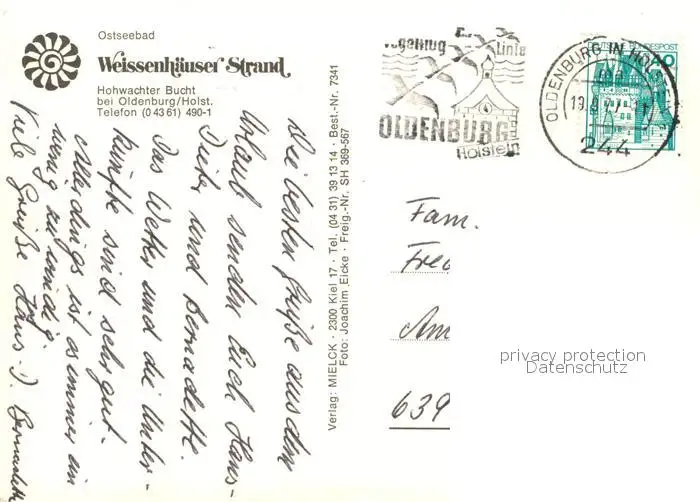 Ostseebad
Weissenhäuser Strand
Hohwachter Bucht
bei Oldenburg/Holst.
Telefon (0 43 61) 490-1
Die besten Grüße aus dem
Urlaub senden Euch Hans-
Dieter und Bernadette.
Das Wetter und die Unter-
künfte sind sehr gut.
Allerdings ist es immer ein
wenig zu windig.
Viele Grüße Hans-D. Bernadette
Verlag: MIELCK · 2300 Kiel 17 · Tel. (04 31) 39 13 14 · Best.-Nr. 7341
Foto: Joachim Eicke · Freig.-Nr. SH 369-567
Vogelflug Linie
OLDENBURG
Holstein
OLDENBURG IN HOLST
244
DEUTSCHE BUNDESPOST
Fam.
Am
639
privacy protection
Datenschutz